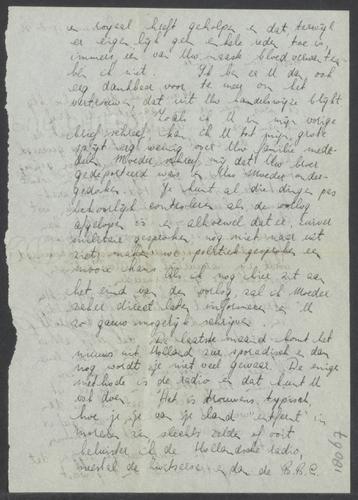 en royaal heeft geholpen en dat, terwijl
er eigenlijk geen enkele reden toe is
immers een van Uw naaste bloedverwanten
ben ik niet. Ik ben er U dan ook
erg dankbaar voor te meer om het
vertrouwen, dat uit Uw handelwijze blijkt
Zoals ik U in mijn vorige
brief schreef, kan ik U tot mijn grote
spijt erg weinig over Uw familie mede-
delen. Moeder schreef mij, dat Uw broer
gedeporteerd was en Uw Moeder onder-
gedoken. Je kunt al die dingen pas
behoorlijk controleren als de oorlog
afgelopen is en alhoewel dat er, zuiver
militair gesproken, nog niet naar uit
ziet, maken we politiek gesproken een
mooie kans. Als ik nog hier zit aan
het eind van de oorlog, zal ik Moeder
zeker direct laten informeren en U
zo gauw mogelijk schrijven.
De laatste maand komt het
nieuws uit Holland zeer sporadisch en dan
nog wordt je niet veel gewaar. De enige
methode is de radio en dat kunt U
ook doen. Het is trouwens typisch,
hoe je je van je land "entfernt" in
morelen zin slechts zelden of ooit
beluister ik de Hollandsche radio,
meestal de Zwitserse en dan de B.B.C.
18067